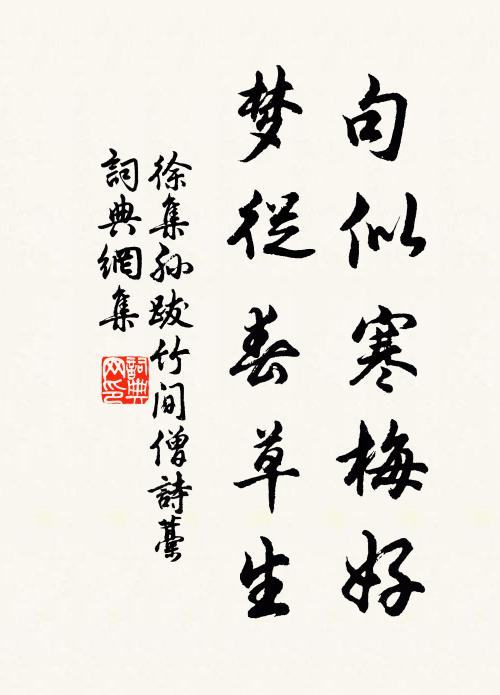 句似寒梅好
梦從春草生
徐集孙跋竹间僧詩藁
詞典網集
詞典网印